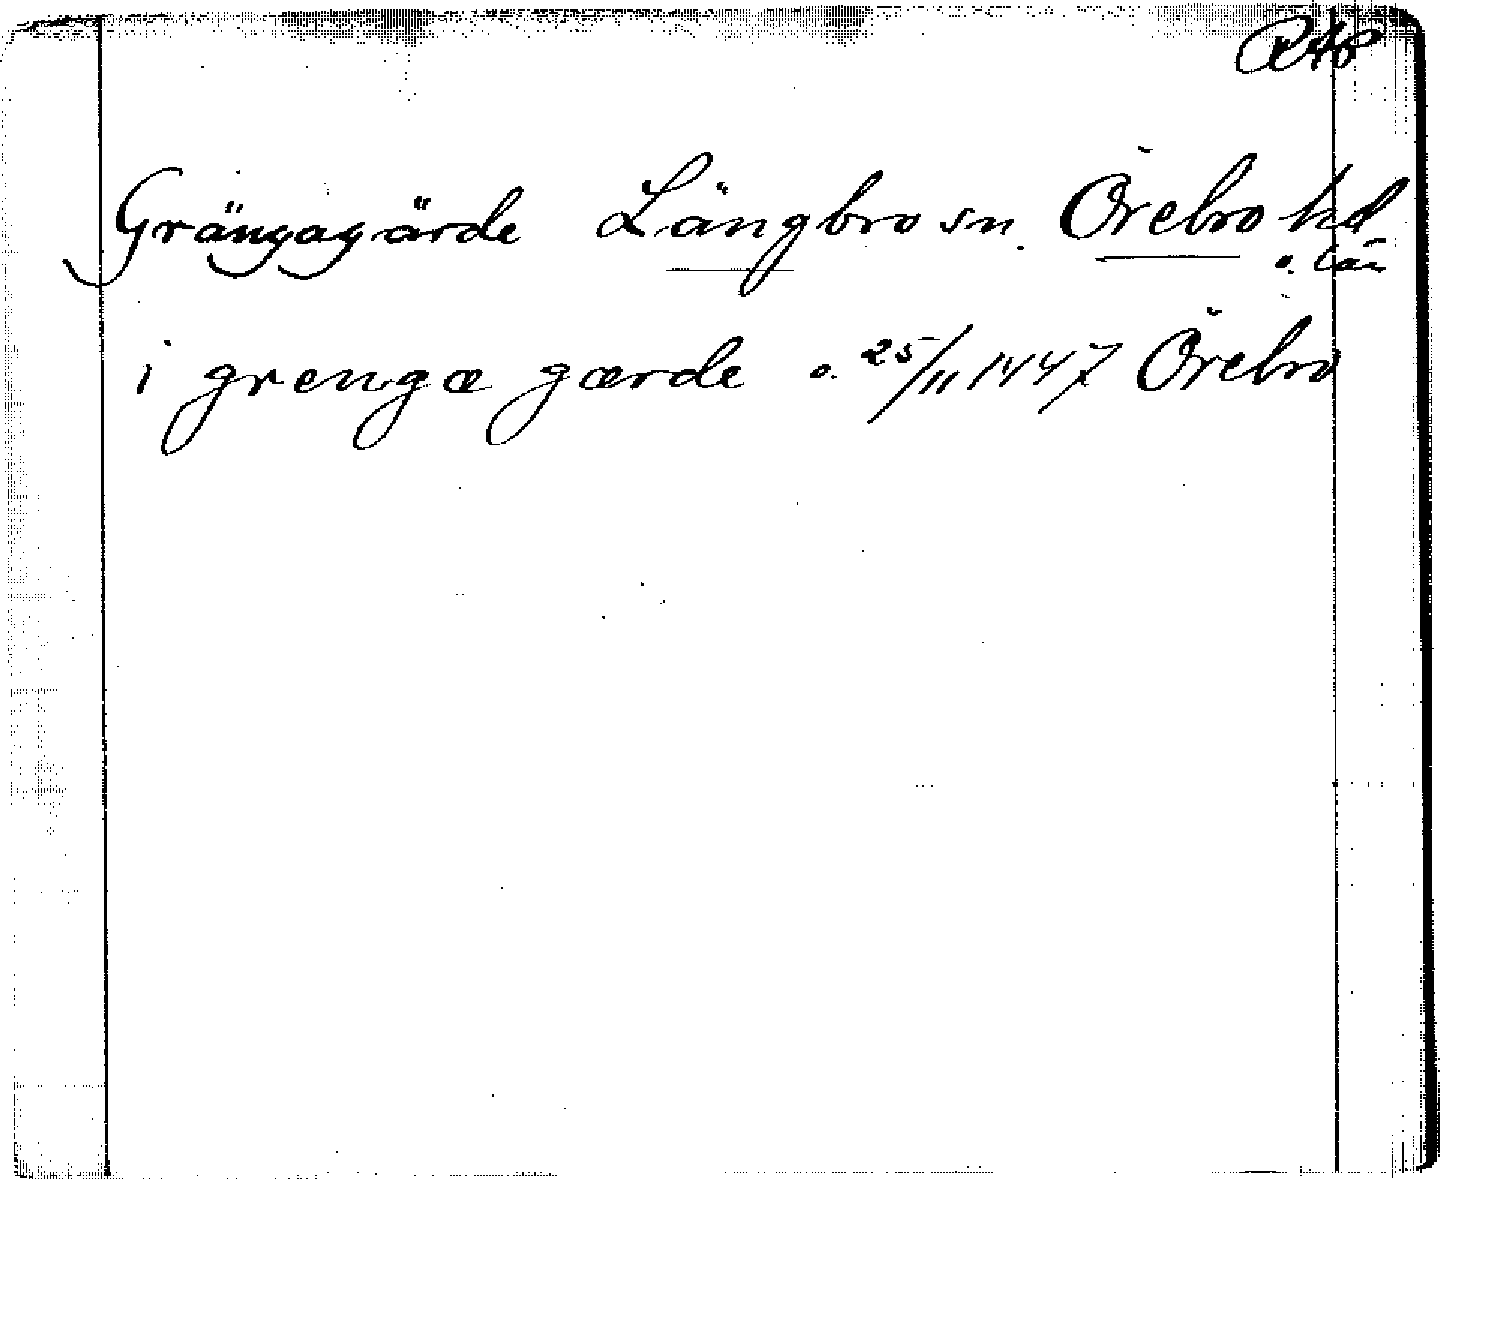 RAp
Grängagärde Längbro sn. Örebro hd
o. län
i grengæ gærde o. 25/11 1447 Örebro